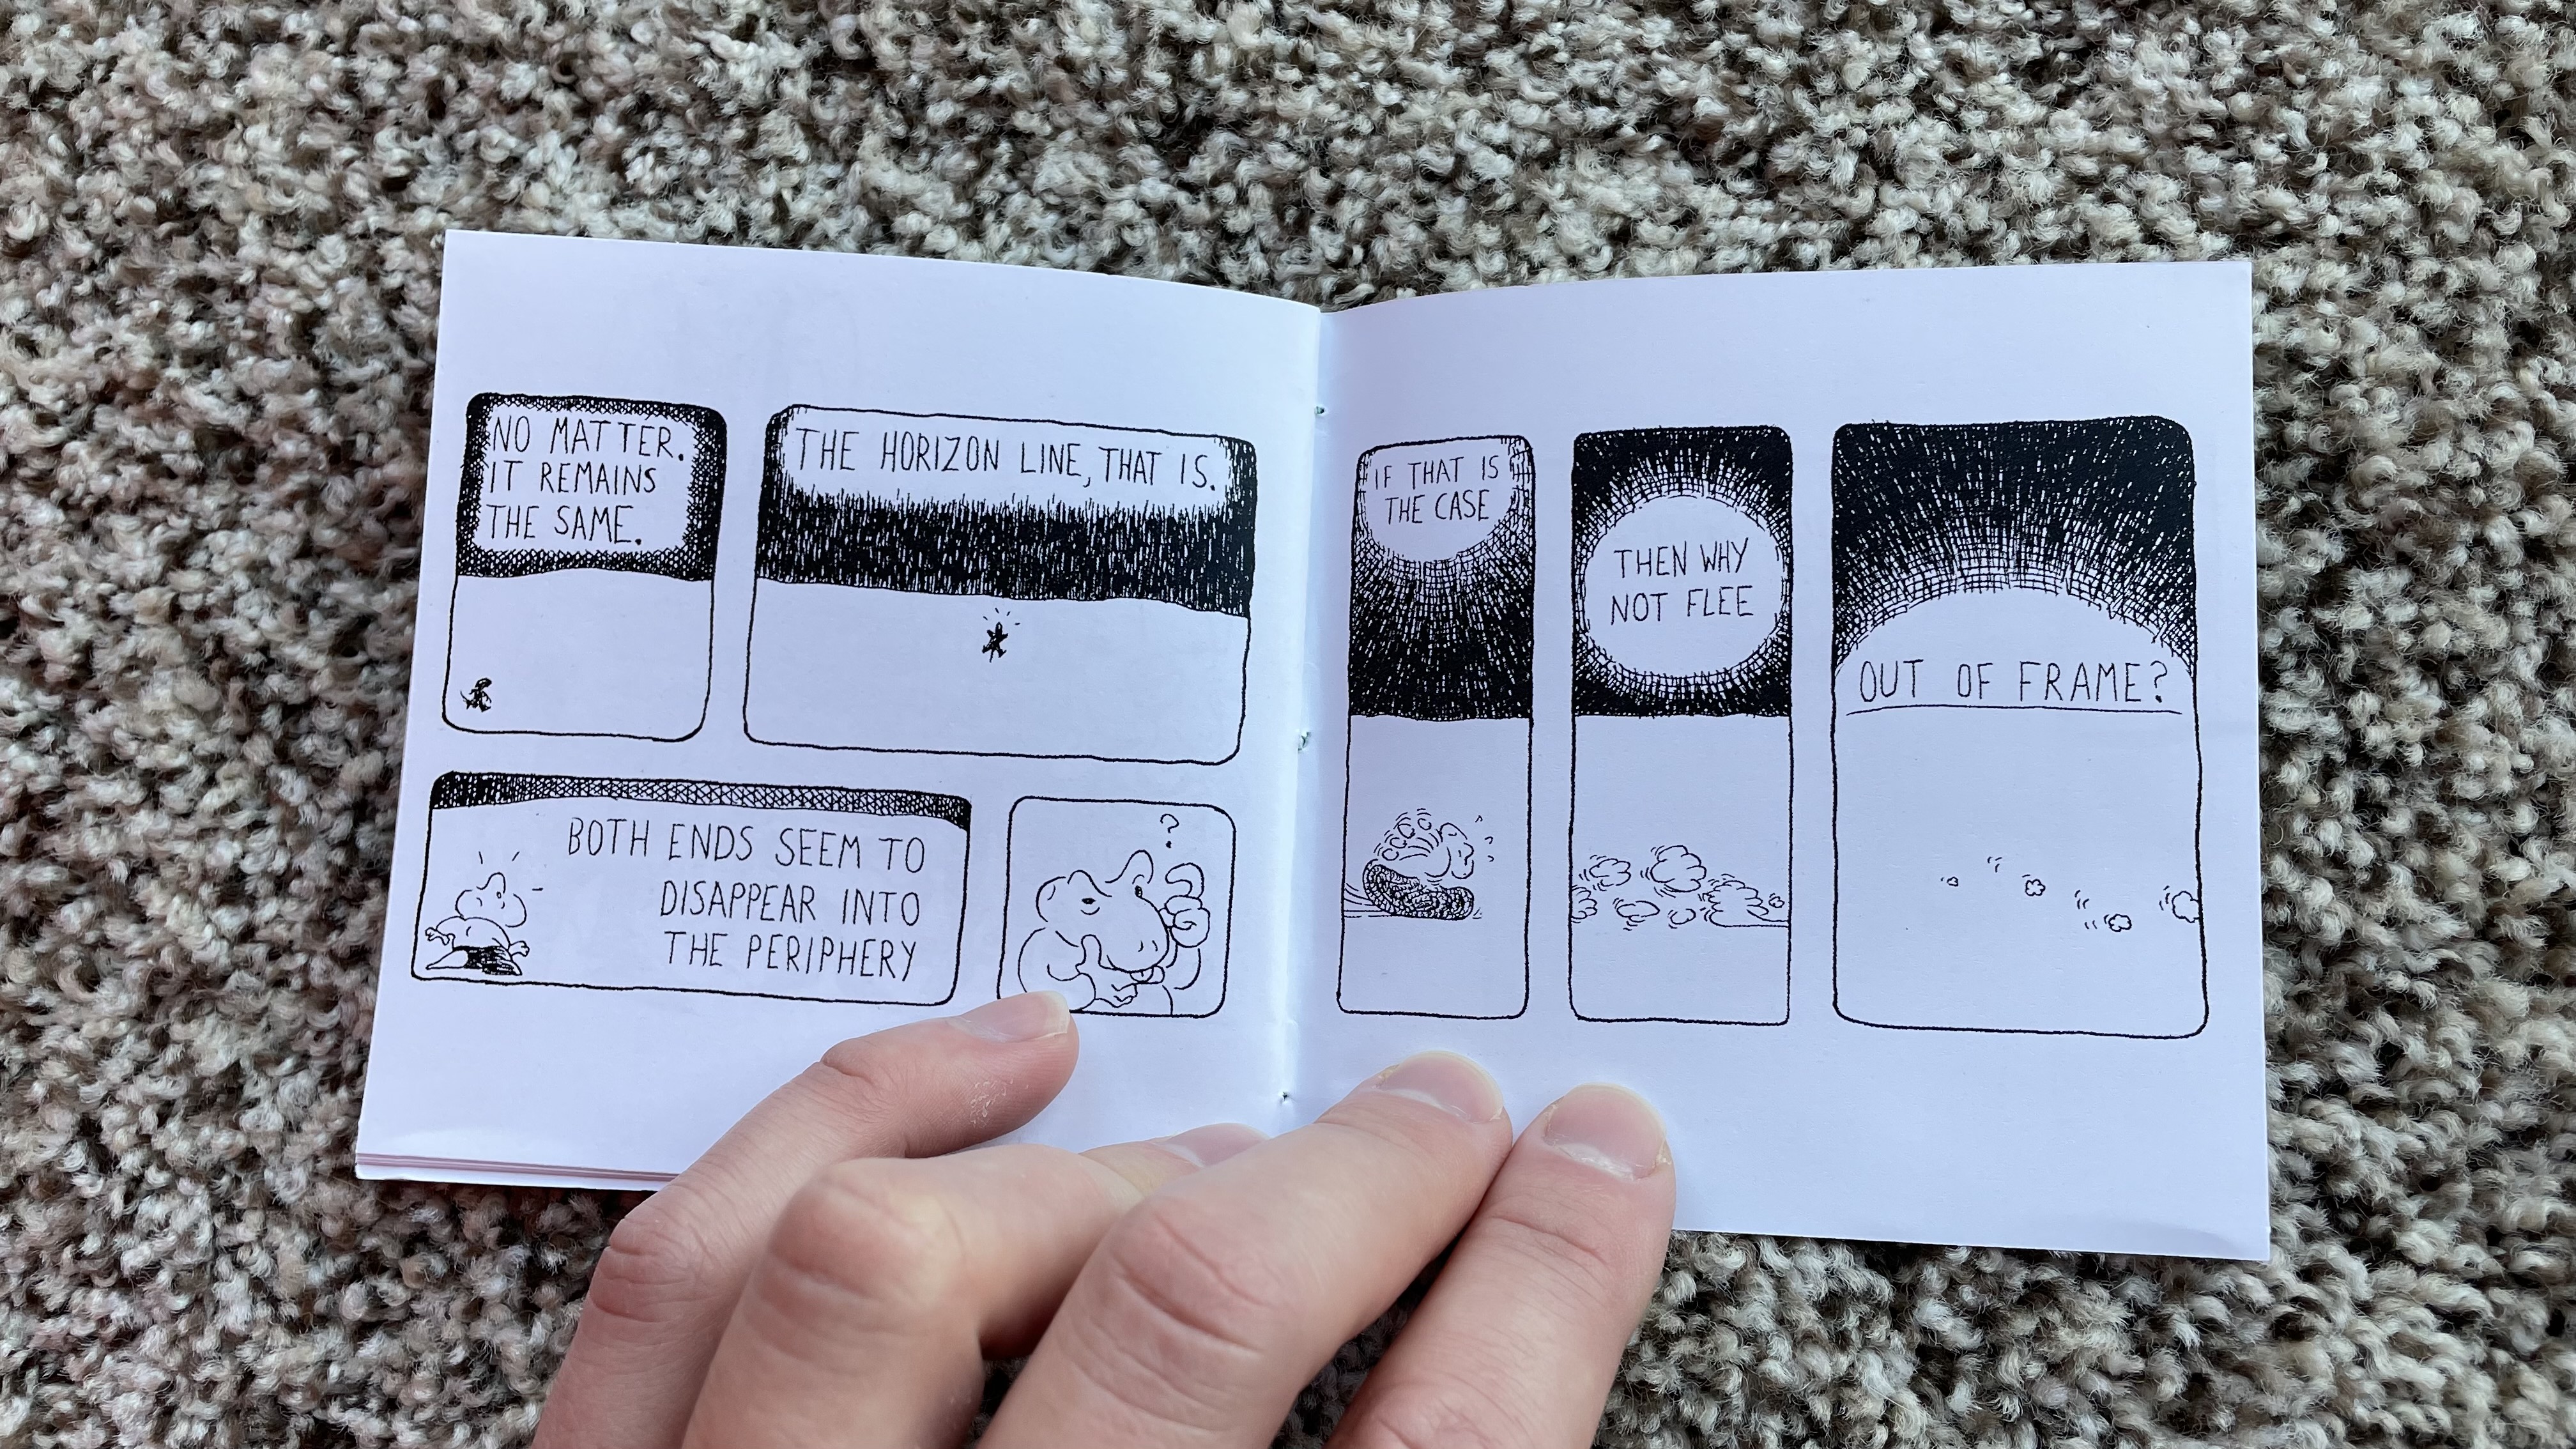 NO MATTER.
IT REMAINS
THE SAME.
THE HORIZON LINE, THAT IS.
BOTH ENDS SEEM TO
DISAPPEAR INTO
THE PERIPHERY
?
IF THAT IS
THE CASE
THEN WHY
NOT FLEE
OUT OF FRAME?